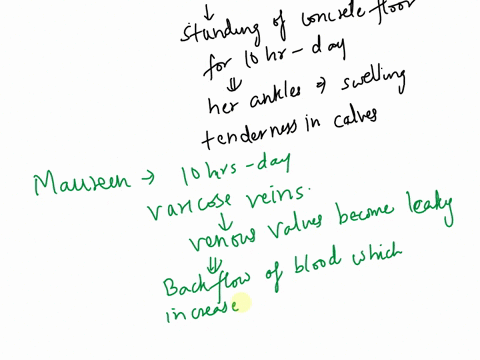 ↓
standing of concrete floor
for 10 hr - day
⇓
her ankles ⇒ swelling
tenderness in calves
Maureen → 10 hrs - day
varicose veins.
↓
venous values become leaky
⇓
Backflow of blood which
increase